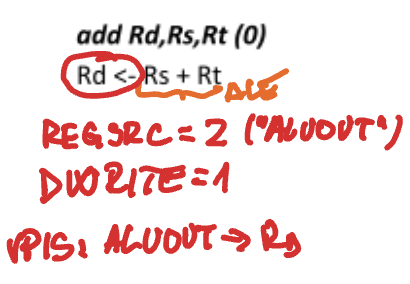 add Rd,Rs,Rt (0)
Rd <- Rs + Rt ALE
REGSRC = 2 ("ALUOUT")
DWRITE = 1
VPIS: ALUOUT → Rd